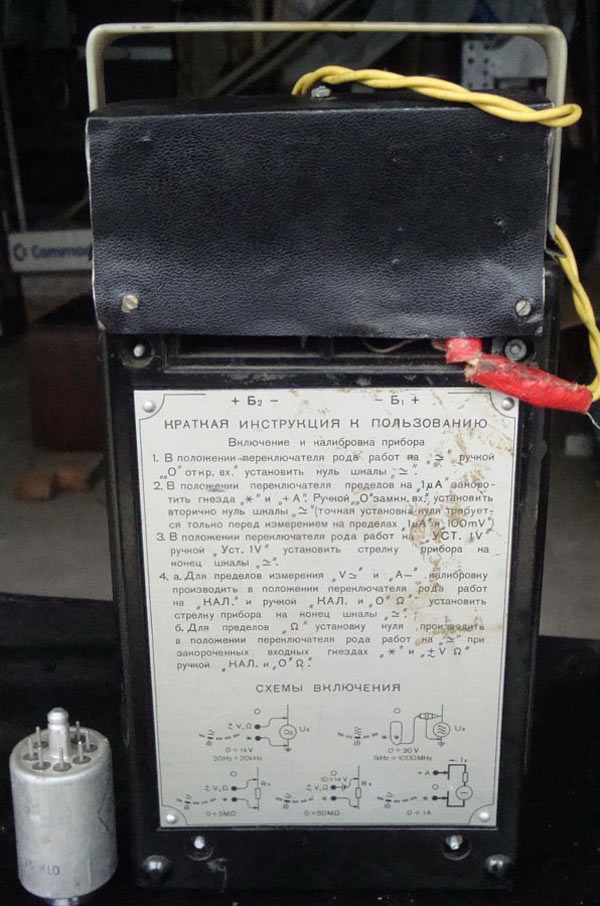 Commod
+ Б₂ −   − Б₁ +
КРАТКАЯ ИНСТРУКЦИЯ К ПОЛЬЗОВАНИЮ
Включение и калибровка прибора
1. В положении переключателя рода работ на „≃" ручкой
„О" откр. вх." установить нуль шкалы „≃".
2. В положении переключателя пределов на „1μА" закоро-
тить гнезда „*" и „+А". Ручкой „О"замкн. вх." установить
вторично нуль шкалы „≃"(точная установка нуля требует-
ся только перед измерением на пределах „1μА" и „100mV")
3. В положении переключателя рода работ на „УСТ. 1V"
ручкой „Уст. 1V" установить стрелку прибора на
конец шкалы „≃".
4. а. Для пределов измерения „V≃" и „А−" калибровку
производить в положении переключателя рода работ
на „КАЛ." и ручкой „КАЛ. и „О" Ω" установить
стрелку прибора на конец шкалы „≃".
б. Для пределов „Ω" установку нуля производить
в положении переключателя рода работ на „≃" при
закороченных входных гнездах „*" и „± V Ω"
ручкой „КАЛ. и „О" Ω".
СХЕМЫ ВКЛЮЧЕНИЯ
≃ V, Ω Uх
0÷14V
20Hz÷20kHz
Uх
0÷30V
1kHz÷1000MHz
≃ V, Ω Rх
0÷5MΩ
10÷14V
≃ V, Ω Rх
0÷50MΩ
+А Iх
0÷1A